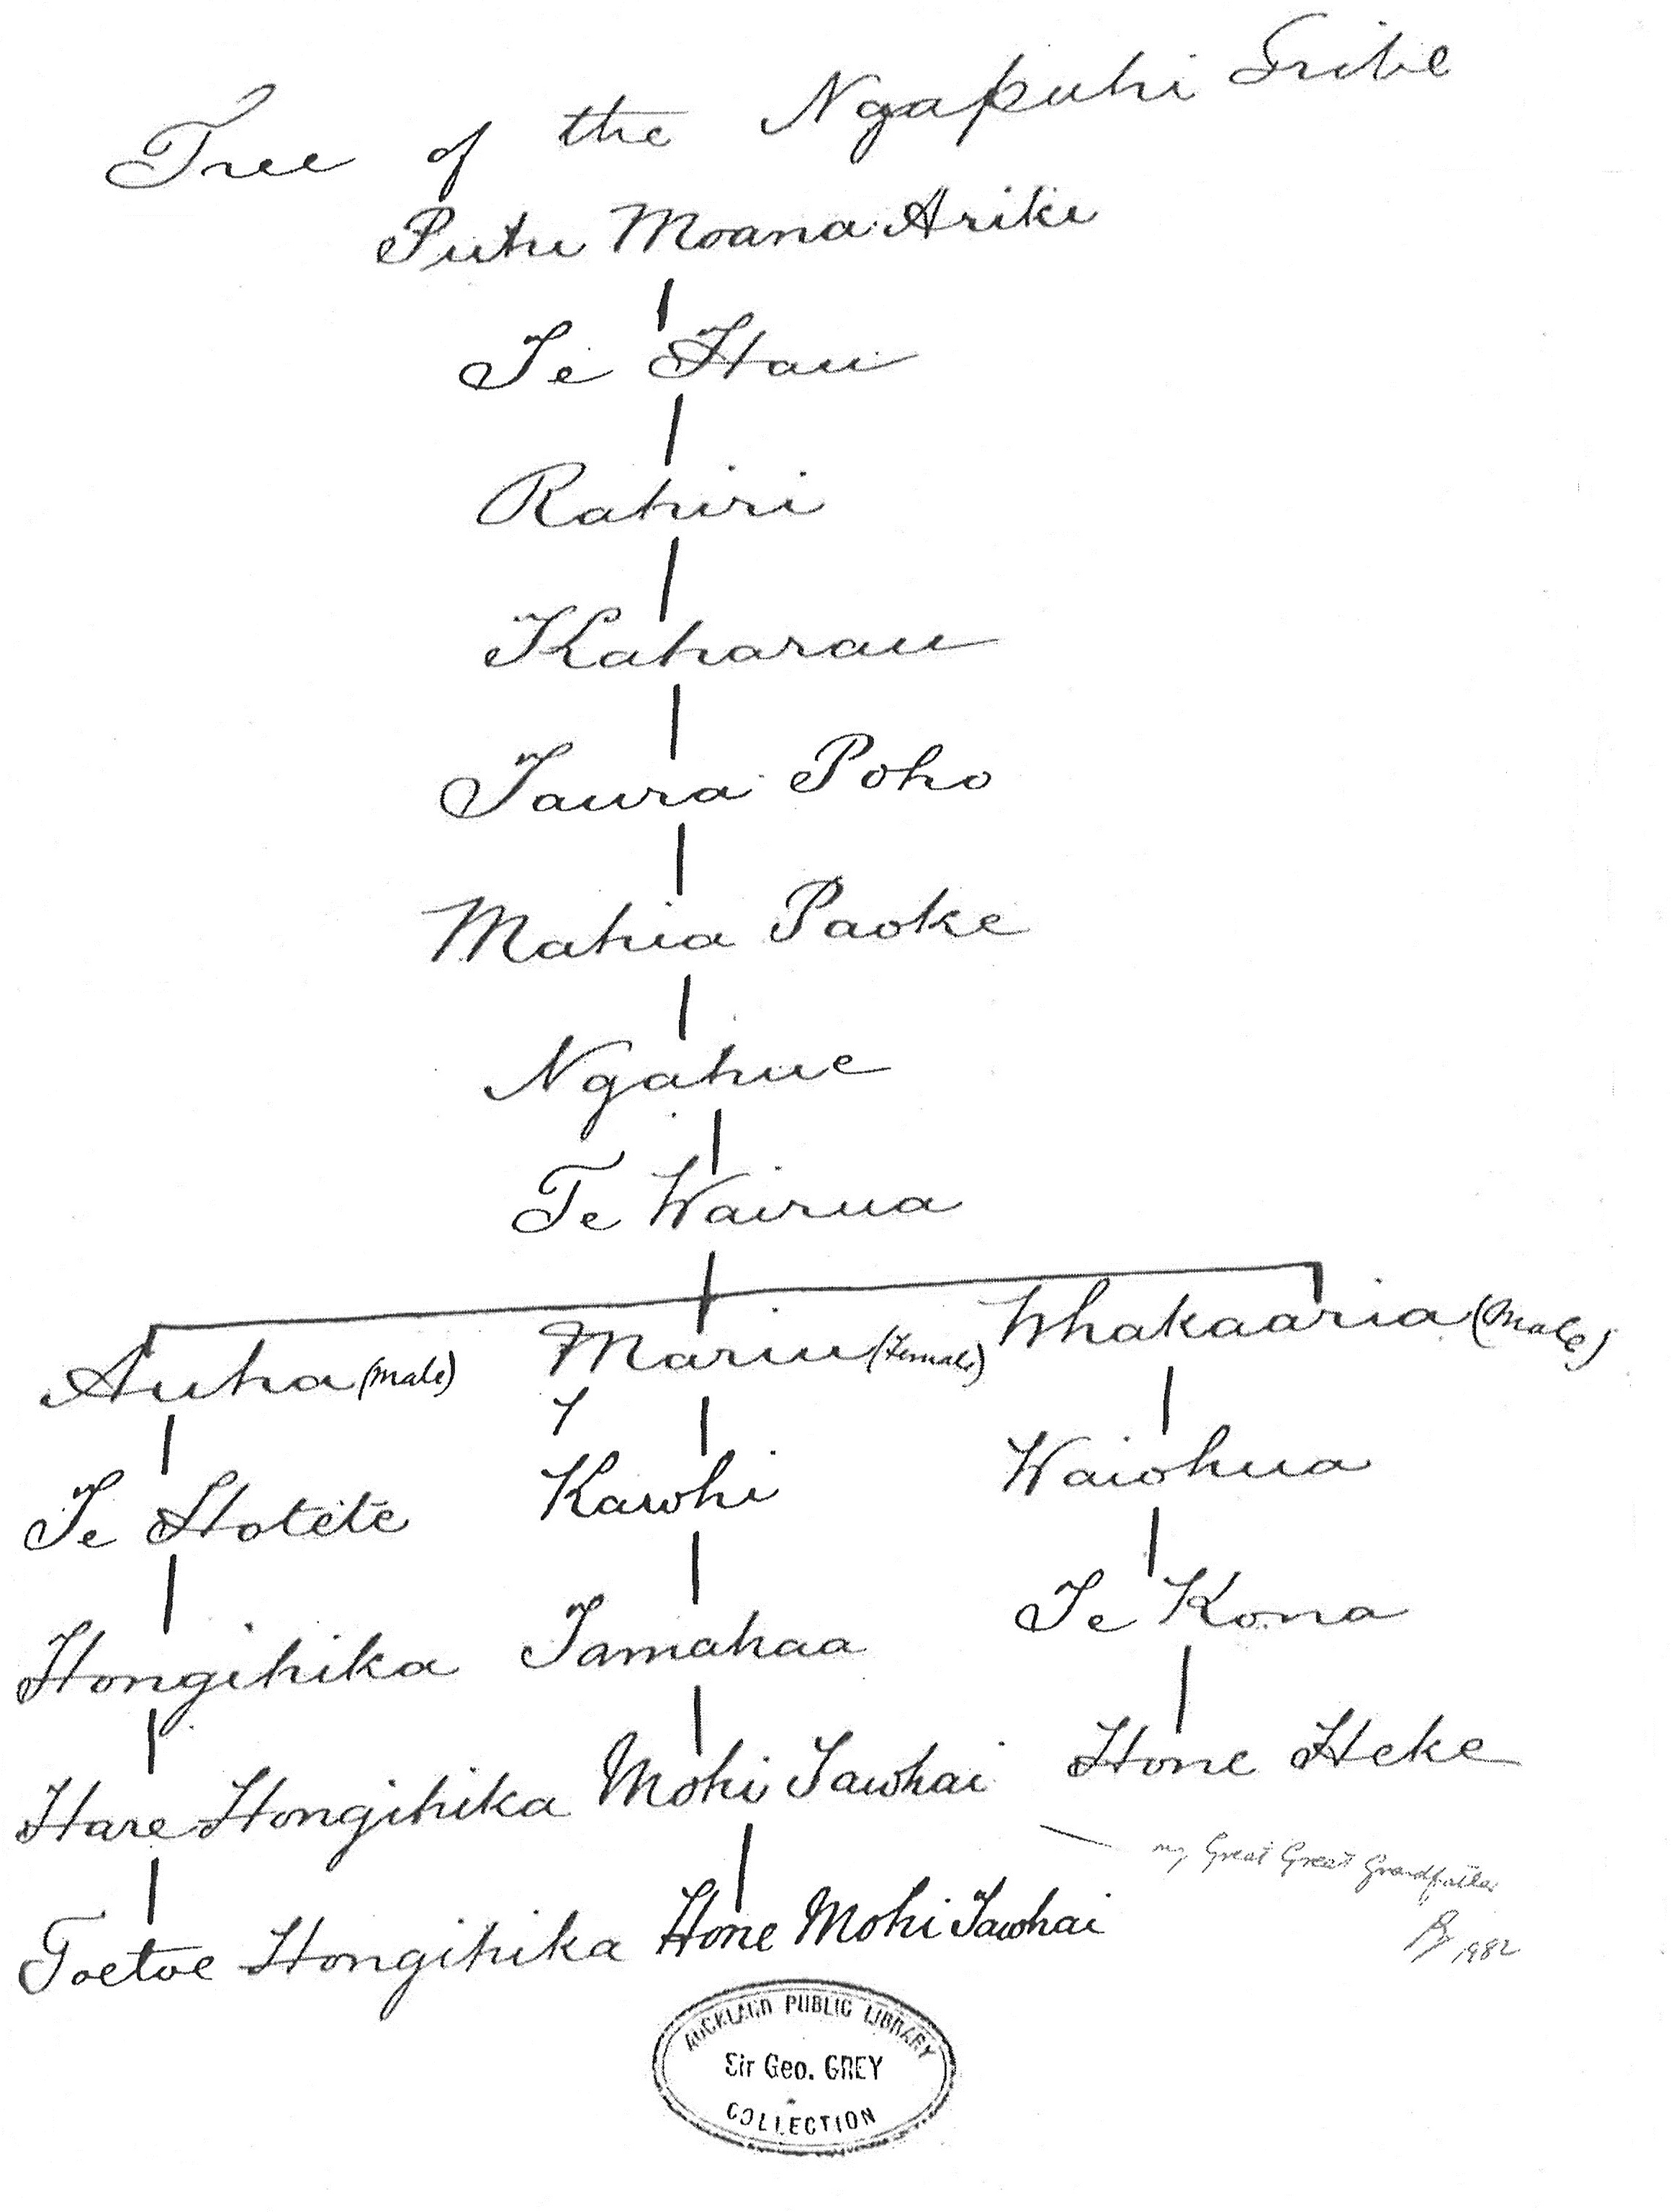 Tree of the Ngapuhi Tribe
Puhi Moana Ariki
Te Hau
Rahiri
Kaharau
Taura Poho
Mahia Paoke
Ngahue
Te Wairua
Auha (Male) Mariu (Female) Whakaaria (Male)
Te Hotete Kawhi Waiohua
Hongihika Tamahaa Te Kona
Hare Hongihika Mohi Tawhai Hone Heke
my Great Great Grandfather
Toetoe Hongihika Hone Mohi Tawhai
1982
AUCKLAND PUBLIC LIBRARY
Sir Geo. GREY
COLLECTION